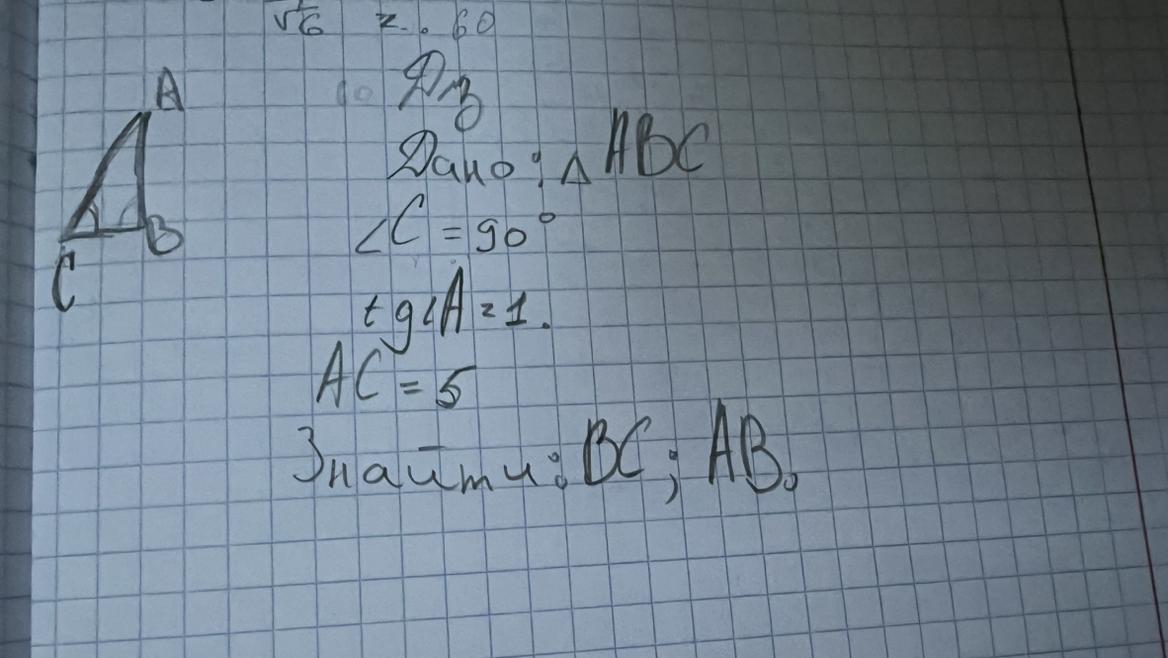 √6 z. . 60
Дз
A
Дано: △ ABC
∠C = 90°
B
C
tg∠A = 1.
AC = 5
Знайти: BC; AB.